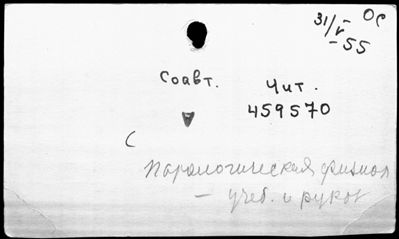 31/V Ос
-55
Соавт.
Чит.
459570
С
Паталогическая физиол
— учеб. и руков